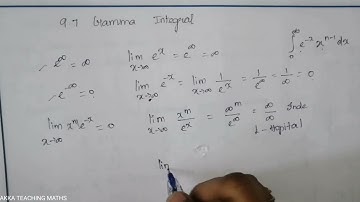 9.7 Gramma Integral
e^∞ = ∞
lim x→∞ e^x = e^∞ = ∞
∫ n ∞ e^-x x^n-1 dx
e^-∞ = 0
lim x→∞ e^-x = lim x→∞ 1/e^x = 1/e^∞ = 1/∞ = 0
lim x→∞ x^m e^-x = 0
lim x→∞ x^m/e^x = ∞^m/e^∞ = ∞/∞ Inde
L-Hopital
lim
AKKA TEACHING MATHS